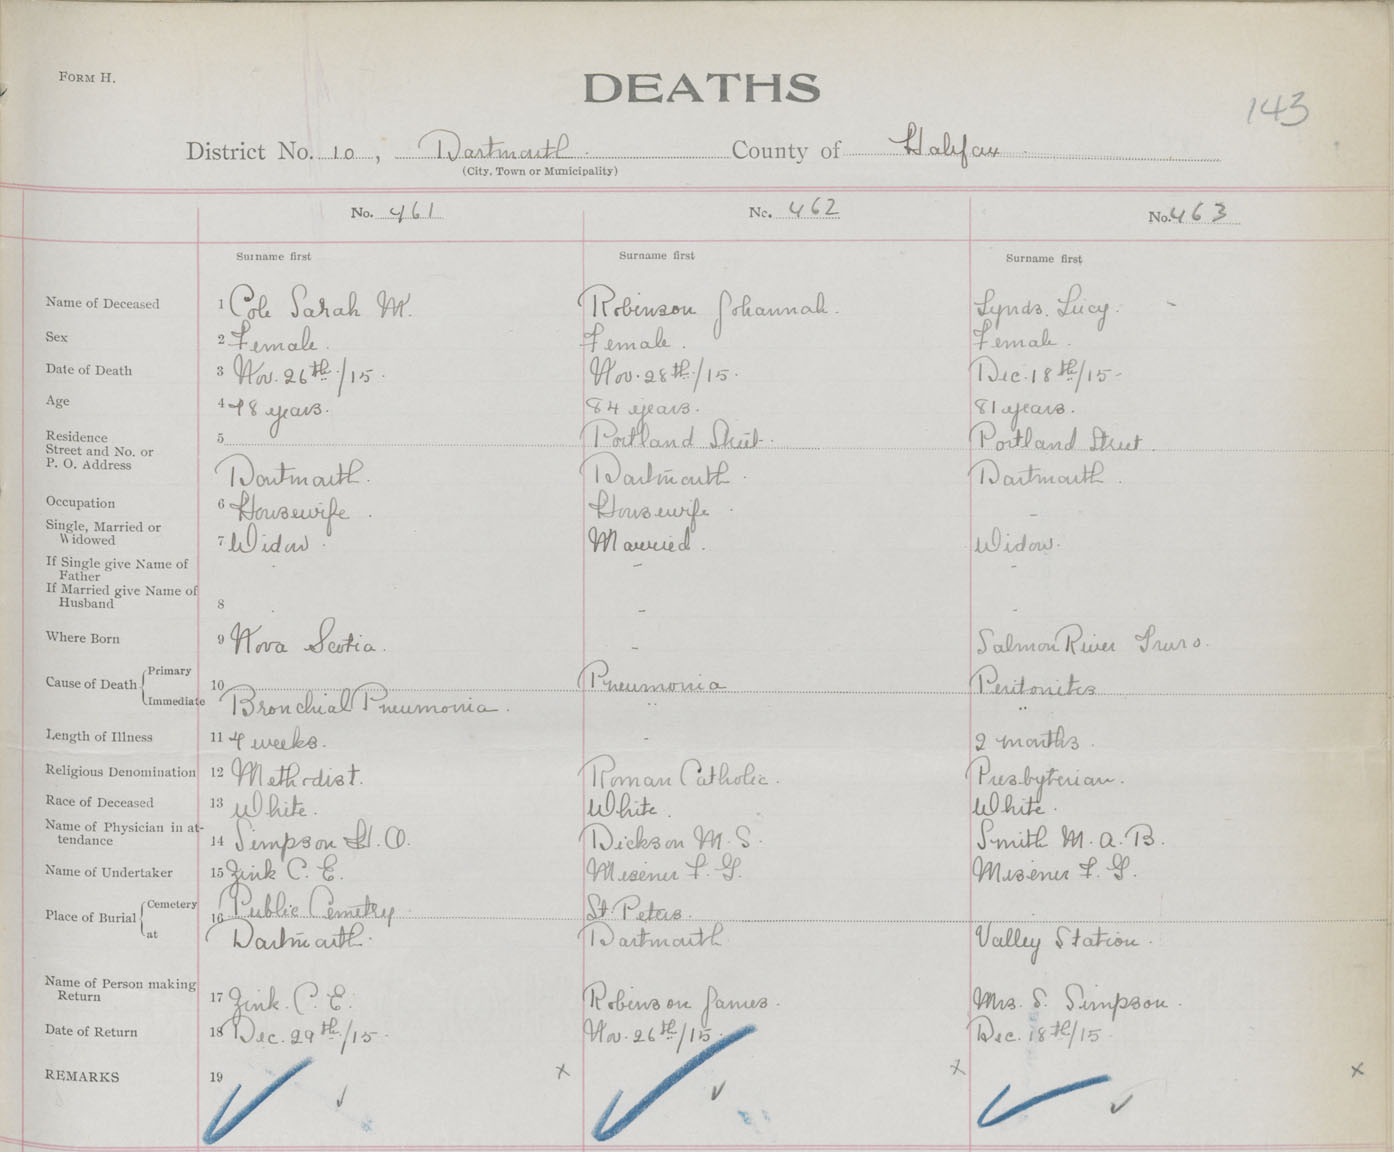 FORM H.
DEATHS
143
District No. 10, Dartmouth. County of Halifax
(City, Town or Municipality)
No. 461 No. 462 No. 463
Surname first Surname first Surname first
Name of Deceased 1 Cole Sarah M. Robinson Johannah. Lynds. Lucy.
Sex 2 Female. Female. Female.
Date of Death 3 Nov. 26th/15. Nov. 28th/15. Dec. 18th/15-
Age 4 78 years. 84 years. 81 years.
Residence 5 Portland Street. Portland Street.
Street and No. or
P. O. Address Dartmouth. Dartmouth. Dartmouth.
Occupation 6 Housewife. Housewife. -
Single, Married or
Widowed 7 Widow. Married. Widow.
If Single give Name of
Father - - -
If Married give Name of
Husband 8 - - -
Where Born 9 Nova Scotia. - Salmon River Truro.
Cause of Death Primary 10 Pneumonia Peritonitis
Immediate Bronchial Pneumonia. " "
Length of Illness 11 4 weeks. - 2 months.
Religious Denomination 12 Methodist. Roman Catholic. Presbyterian.
Race of Deceased 13 White. White. White.
Name of Physician in at-
tendance 14 Simpson H. O. Dickson M. S. Smith M. A. B.
Name of Undertaker 15 Zink C. E. Misener F. G. Misener F. G.
Place of Burial Cemetery 16 Public Cemetry St. Peters.
at Dartmouth. Dartmouth. Valley Station.
Name of Person making
Return 17 Zink. C. E. Robinson James. Mrs. S. Simpson.
Date of Return 18 Dec. 29th/15- Nov. 26th/15. Dec. 18th/15.
REMARKS 19 x x x